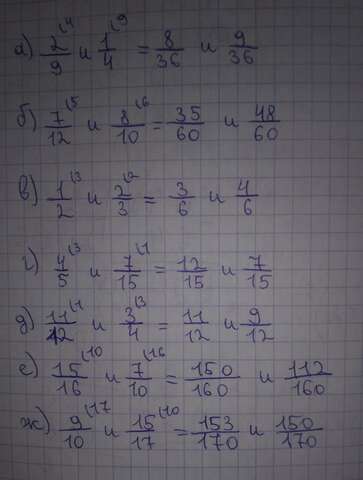 а) 2/9 (4 и 1/4 (9 = 8/36 и 9/36
б) 7/12 (5 и 8/10 (6 = 35/60 и 48/60
в) 1/2 (3 и 2/3 (2 = 3/6 и 4/6
г) 4/5 (3 и 7/15 (1 = 12/15 и 7/15
д) 11/12 (1 и 3/4 (3 = 11/12 и 9/12
е) 15/16 (10 и 7/10 (16 = 150/160 и 112/160
ж) 9/10 (17 и 15/17 (10 = 153/170 и 150/170